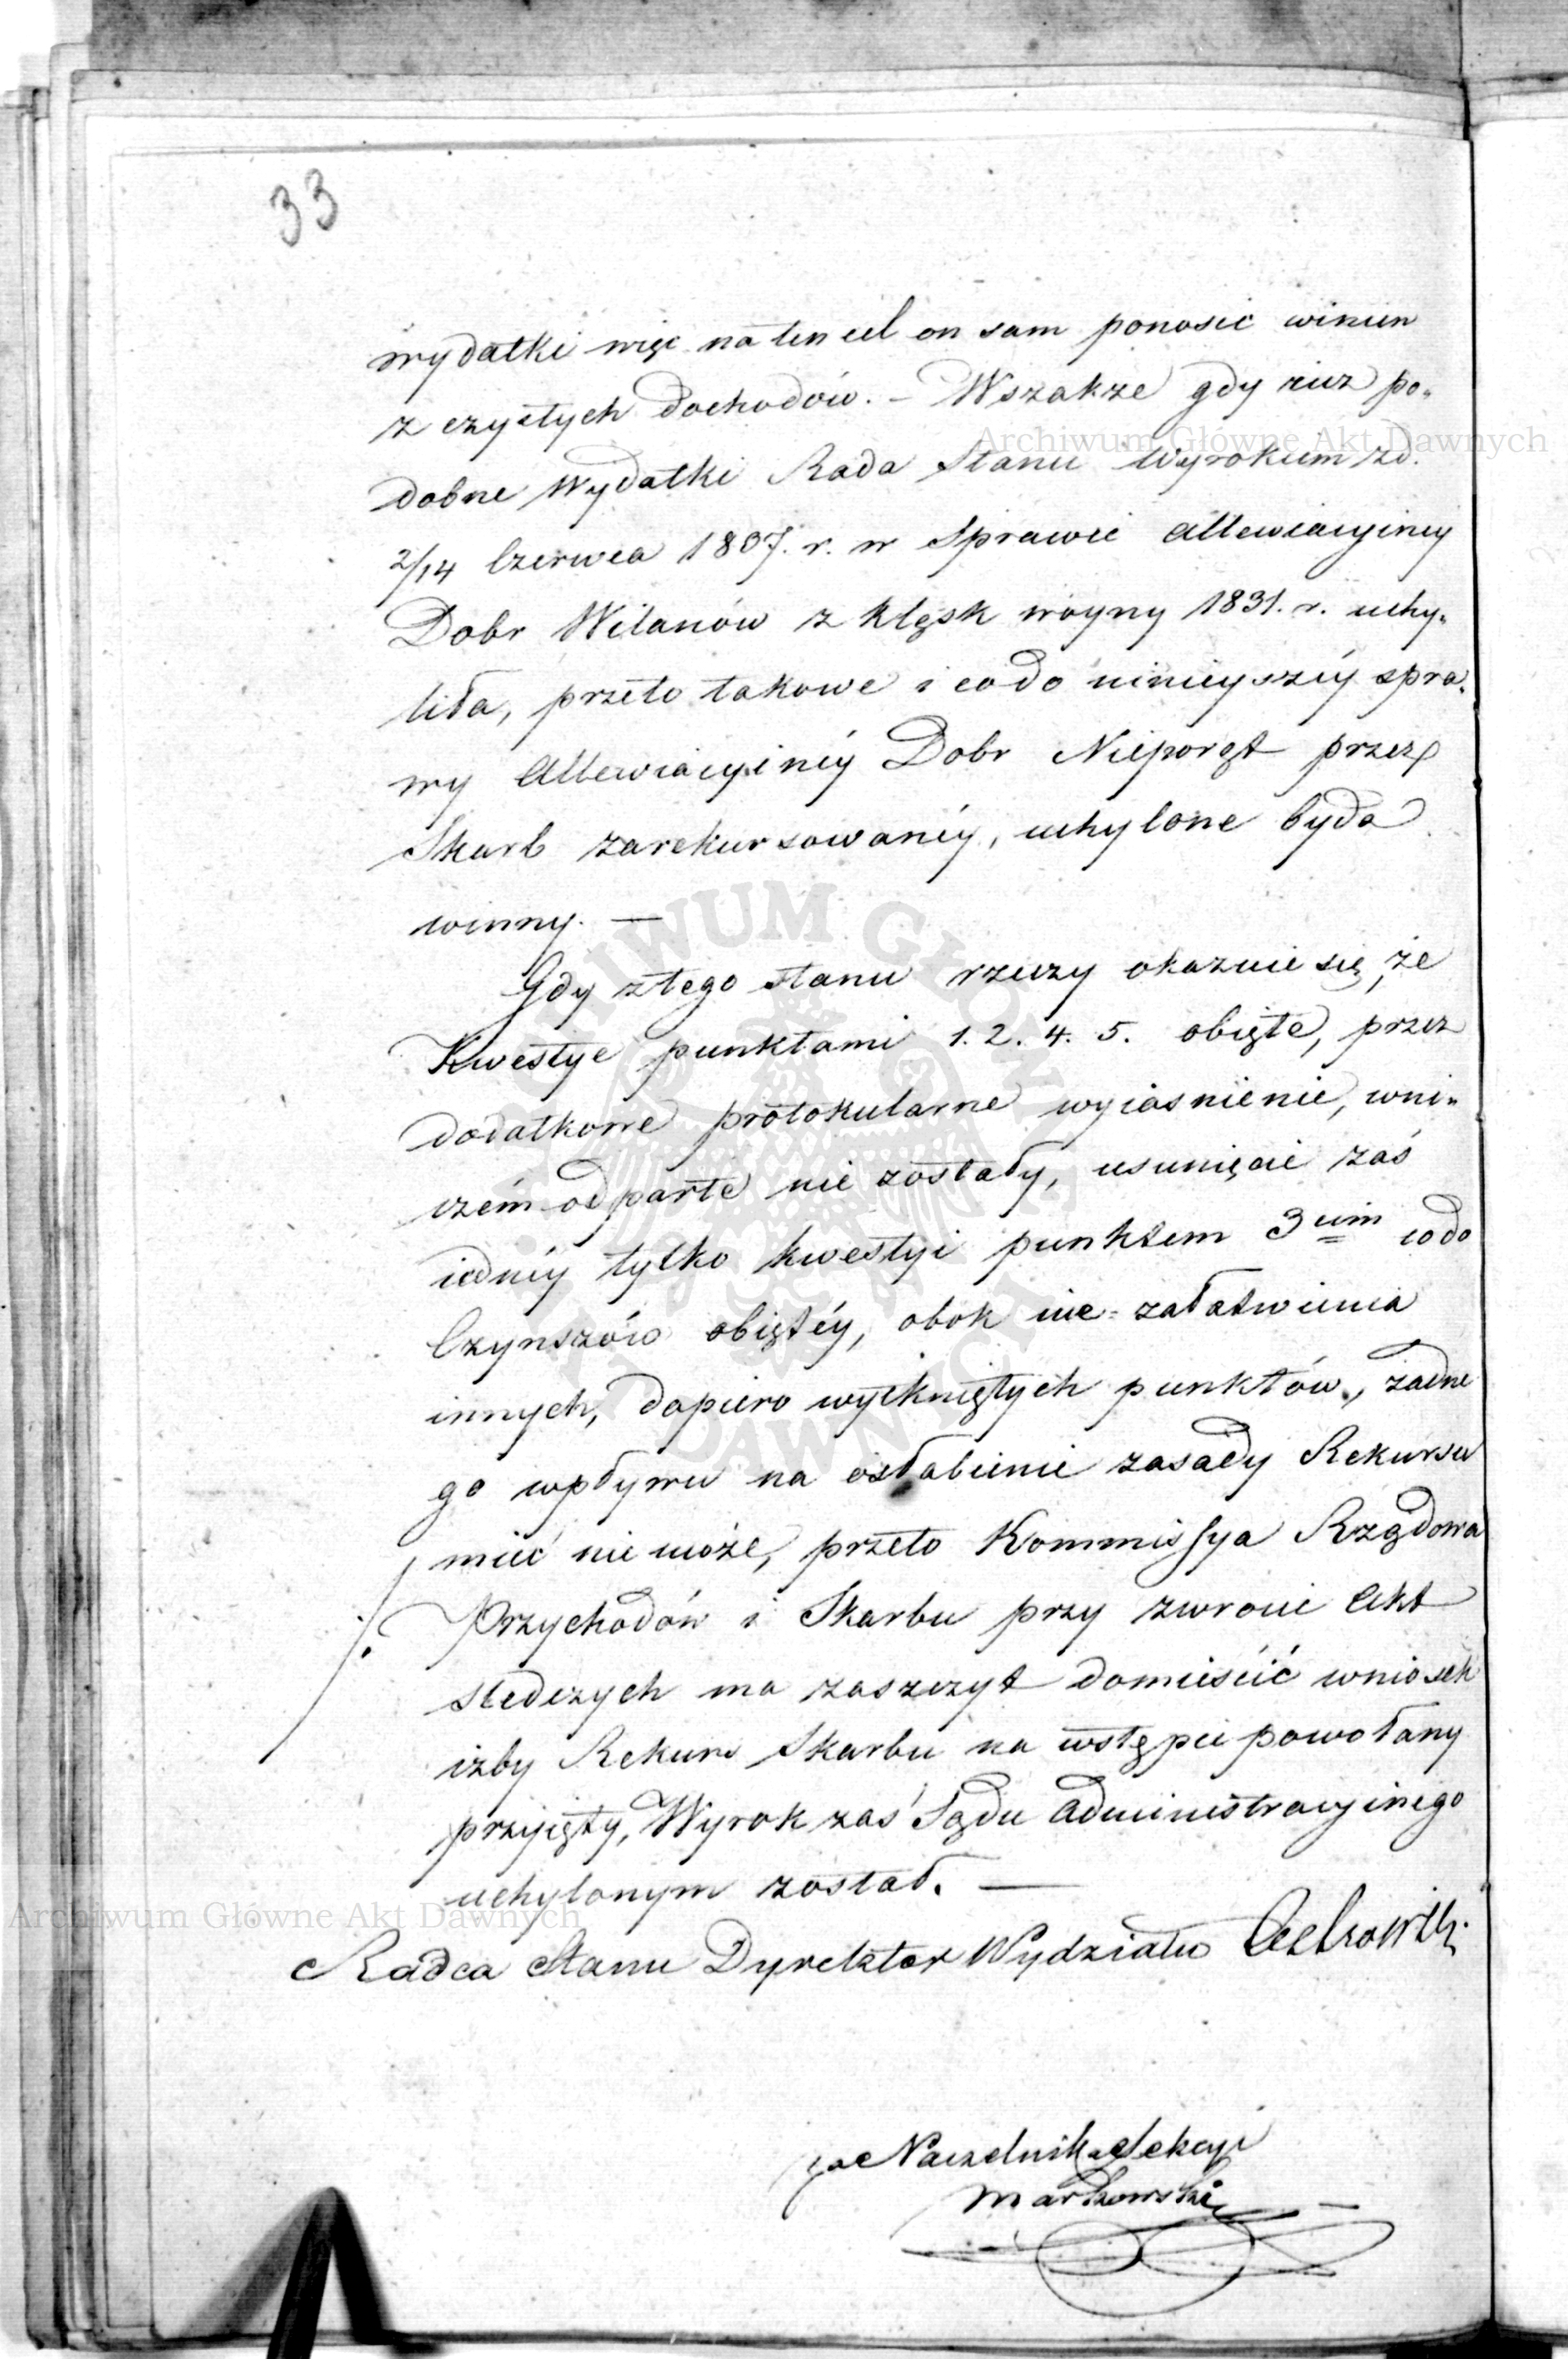 33
wydatki więc na ten cel on sam ponosić winien
z czystych dochodów. – Wszakże gdy iuż po„
dobne wydatki Rada Stanu wyrokiem zd.
2/14 Czerwca 1837. r. w Sprawie Allewiacyiney
Dobr Wilanów z klęsk woyny 1831. r. uchy„
liła, przeto takowe i co do ninieyszéy spra„
wy Allewiacyinéy Dobr Nieporęt przez
Skarb zarekursowanéy, uchylone bydź
winny. —
Gdy z tego stanu rzeczy okazuie się, że
Kwestye punktami 1. 2. 4. 5. obięte, przez
dodatkowe protokularne wyiasnienie, wni„
czém odparte nie zostały, usunięcie zaś
iednéy tylko kwestyi punktem 3cim co do
Czynszów obiętéy, obok nie=załatwienia
innych, dopiero wytkniętych punktów, żadne
go wpływu na osłabienie zasady Rekursu
mieć nie może, przeto Kommissya Rządowa
Przychodów i Skarbu przy zwrocie Akt
sledczych ma zaszczyt domieścić wniosek
iżby Rekurs Skarbu na wstępie powołany
przyięty, Wyrok zaś Sądu Administracyinego
uchylonym został. —
Radca Stanu Dyrektor Wydziału
Naczelnik Sekcyi
Markowski
Archiwum Główne Akt Dawnych
Archiwum Główne Akt Dawnych
ARCHIWUM GŁÓWNE AKT DAWNYCH